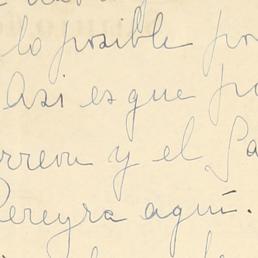 lo posible po
Asi es que po
rreon y el Ga
Pereyra aquí.